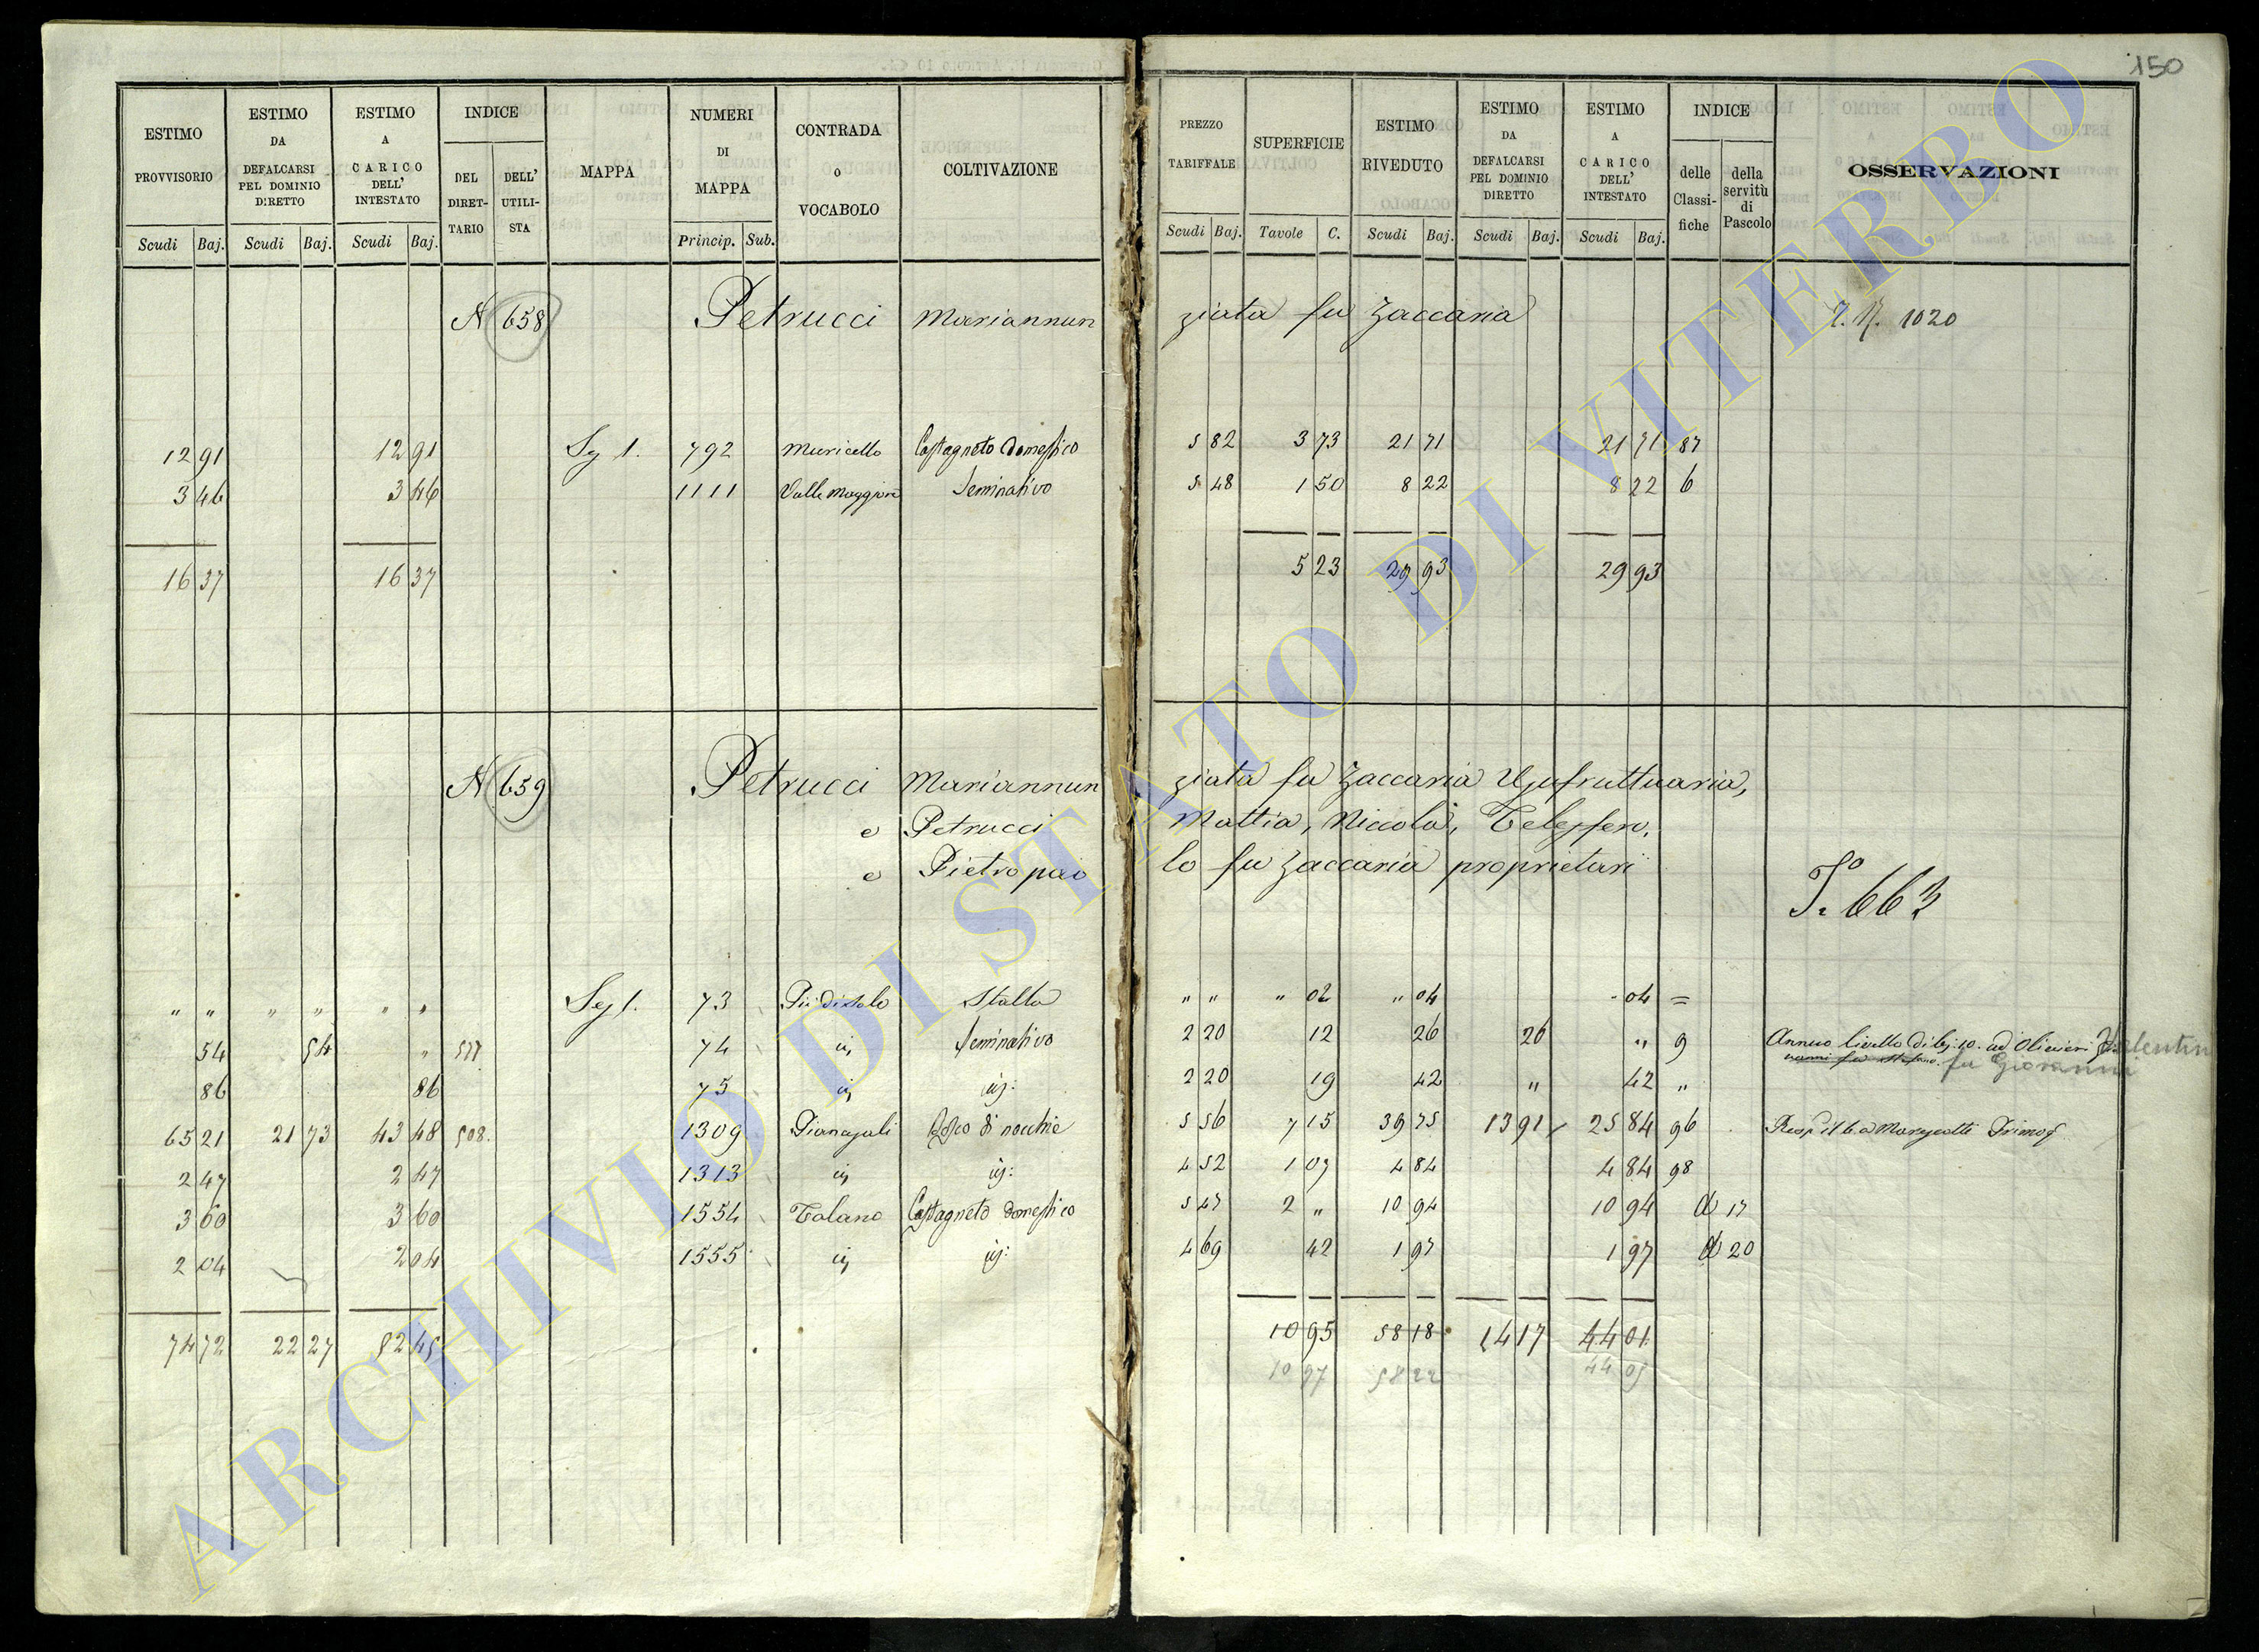 150
ESTIMO PROVVISORIO | ESTIMO DA DEFALCARSI PEL DOMINIO DIRETTO | ESTIMO A CARICO DELL' INTESTATO | INDICE DEL DIRETTARIO | DELL' UTILISTA | MAPPA | NUMERI DI MAPPA | CONTRADA O VOCABOLO | COLTIVAZIONE | PREZZO TARIFFALE | SUPERFICIE | ESTIMO RIVEDUTO | ESTIMO DA DEFALCARSI PEL DOMINIO DIRETTO | ESTIMO A CARICO DELL' INTESTATO | INDICE delle Classifiche | della servitù di Pascolo | OSSERVAZIONI
Scudi Baj. | Scudi Baj. | Scudi Baj. | Princip. Sub. | Scudi Baj. | Tavole C. | Scudi Baj. | Scudi Baj. | Scudi Baj.
N 658 Petrucci Mariannunziata fu Zaccaria 1020
12 91 | 12 91 | 1. | 792 | Muricello | Castagneto domestico | 5 82 | 3 73 | 21 71 | 21 71 | 87
3 46 | 3 46 | 1111 | Valle Maggiore | Seminativo | 5 48 | 1 50 | 8 22 | 8 22 | 6
16 37 | 16 37 | 5 23 | 29 93 | 29 93
N 659 Petrucci Mariannunziata fu Zaccaria Usufruttuaria,
e Petrucci Mattia, Niccola, Telesforo,
e Pietropaolo fu Zaccaria proprietari
663
" " | " " | " " | Sez 1. | 73 | Stalla | " " | " 02 | " 04 | 04 | =
54 | 54 | " | 74 | Seminativo | 2 20 | 12 | 26 | 26 | " | 9 | Annuo livello di bj: 10. ad Olivieri Valentin
fu Giovanni
86 | 86 | 75 | 2 20 | 19 | 42 | " | 42 | "
65 21 | 21 73 | 43 48 | 508. | 1309 | di nocchie | 5 56 | 7 15 | 39 75 | 13 91 | 25 84 | 96
2 47 | 2 47 | 1313 | 4 52 | 1 07 | 4 84 | 4 84 | 98
3 60 | 3 60 | 1554 | Talano | Castagneto domestico | 5 47 | 2 " | 10 94 | 10 94 | 17
2 04 | 2 04 | 1555 | 4 69 | 42 | 1 97 | 1 97 | 20
74 72 | 22 27 | 52 45 | 10 95 | 58 18 | 14 17 | 44 01
10 97 | 58 22 | 44 05
ARCHIVIO DI STATO DI VITERBO